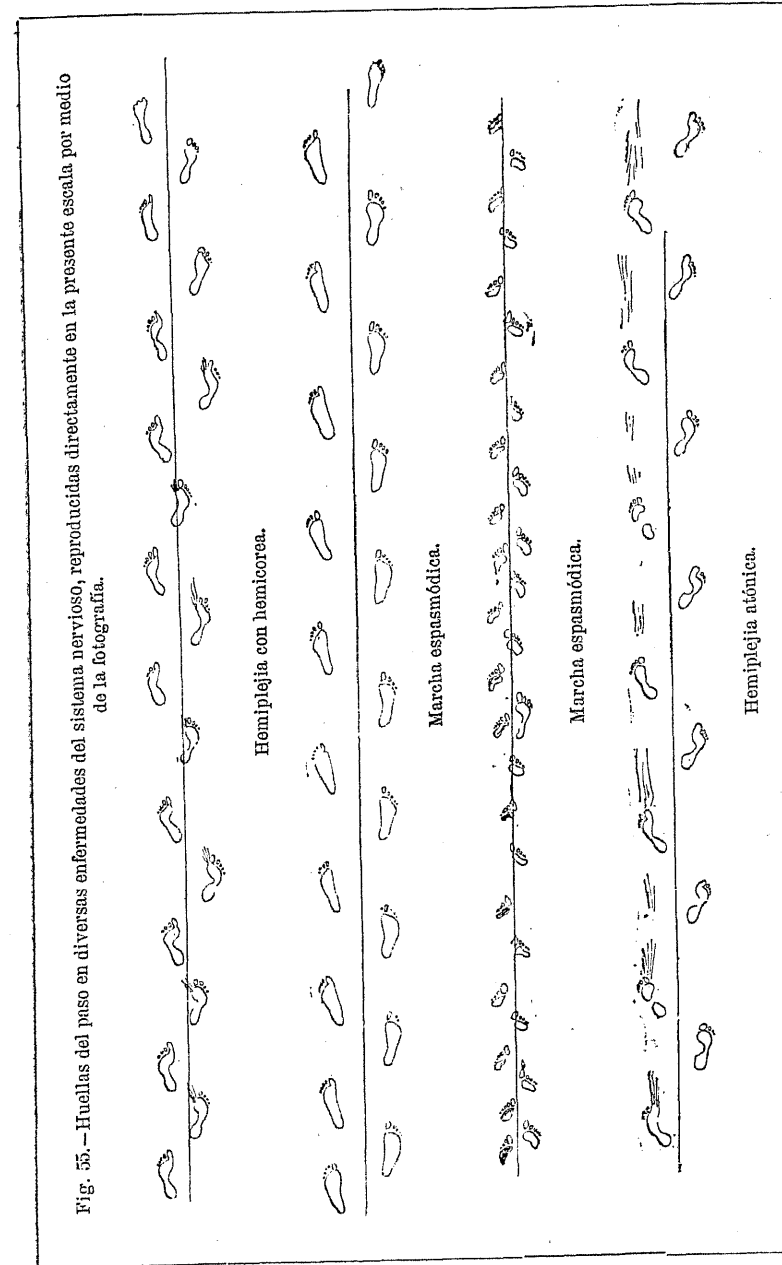 Fig. 55.—Huellas del paso en diversas enfermedades del sistema nervioso, reproducidas directamente en la presente escala por medio
de la fotografía.
Hemiplejia con hemicorea.
Marcha espasmódica.
Marcha espasmódica.
Hemiplejia atónica.